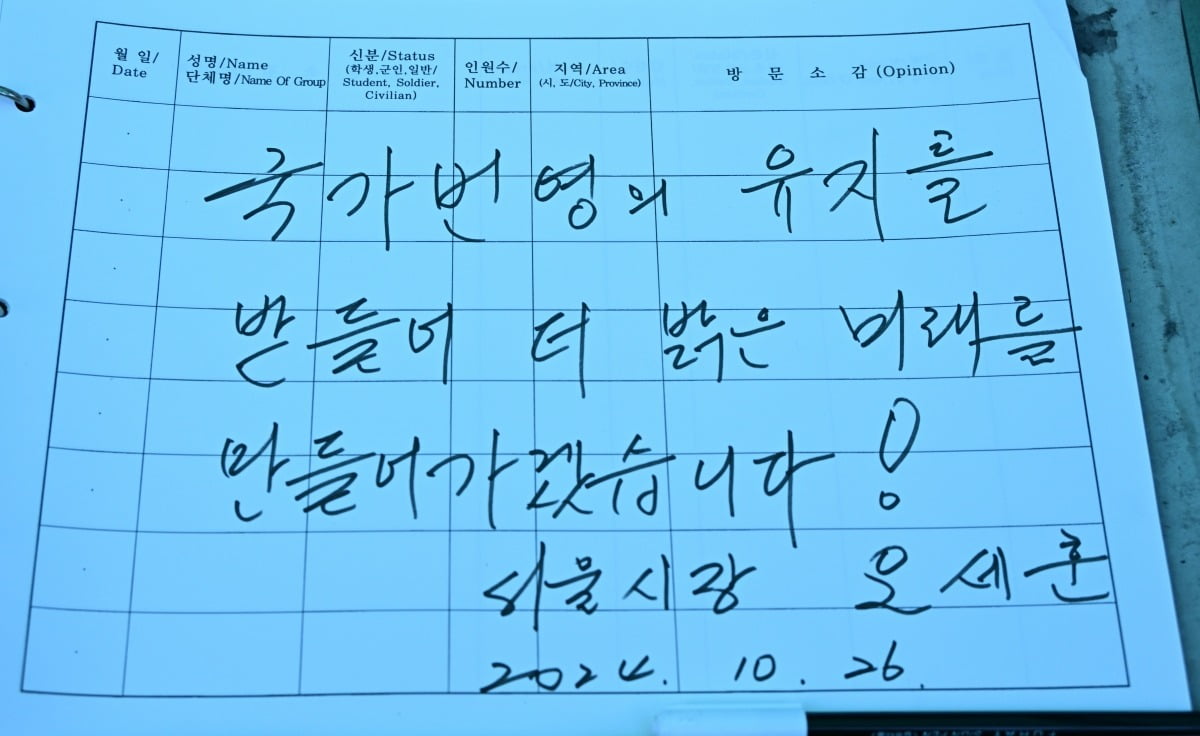 월 일/ Date
성명/Name 단체명/Name Of Group
신분/Status (학생,군인,일반/ Student, Soldier, Civilian)
인원수/ Number
지역/Area (시, 도/City, Province)
방 문 소 감 (Opinion)
국가번영의 유지를
받들어 더 밝은 미래를
만들어가겠습니다!
서울시장 오세훈
2024. 10. 26.